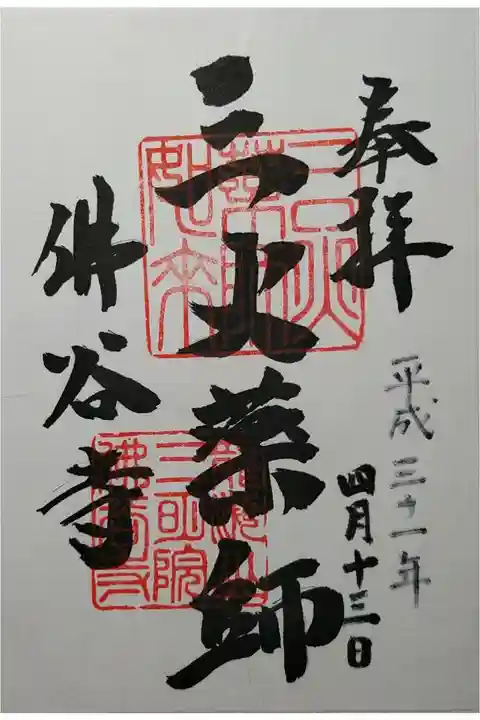 奉拝
平成三十一年
四月十三日
三火薬師
佛谷寺